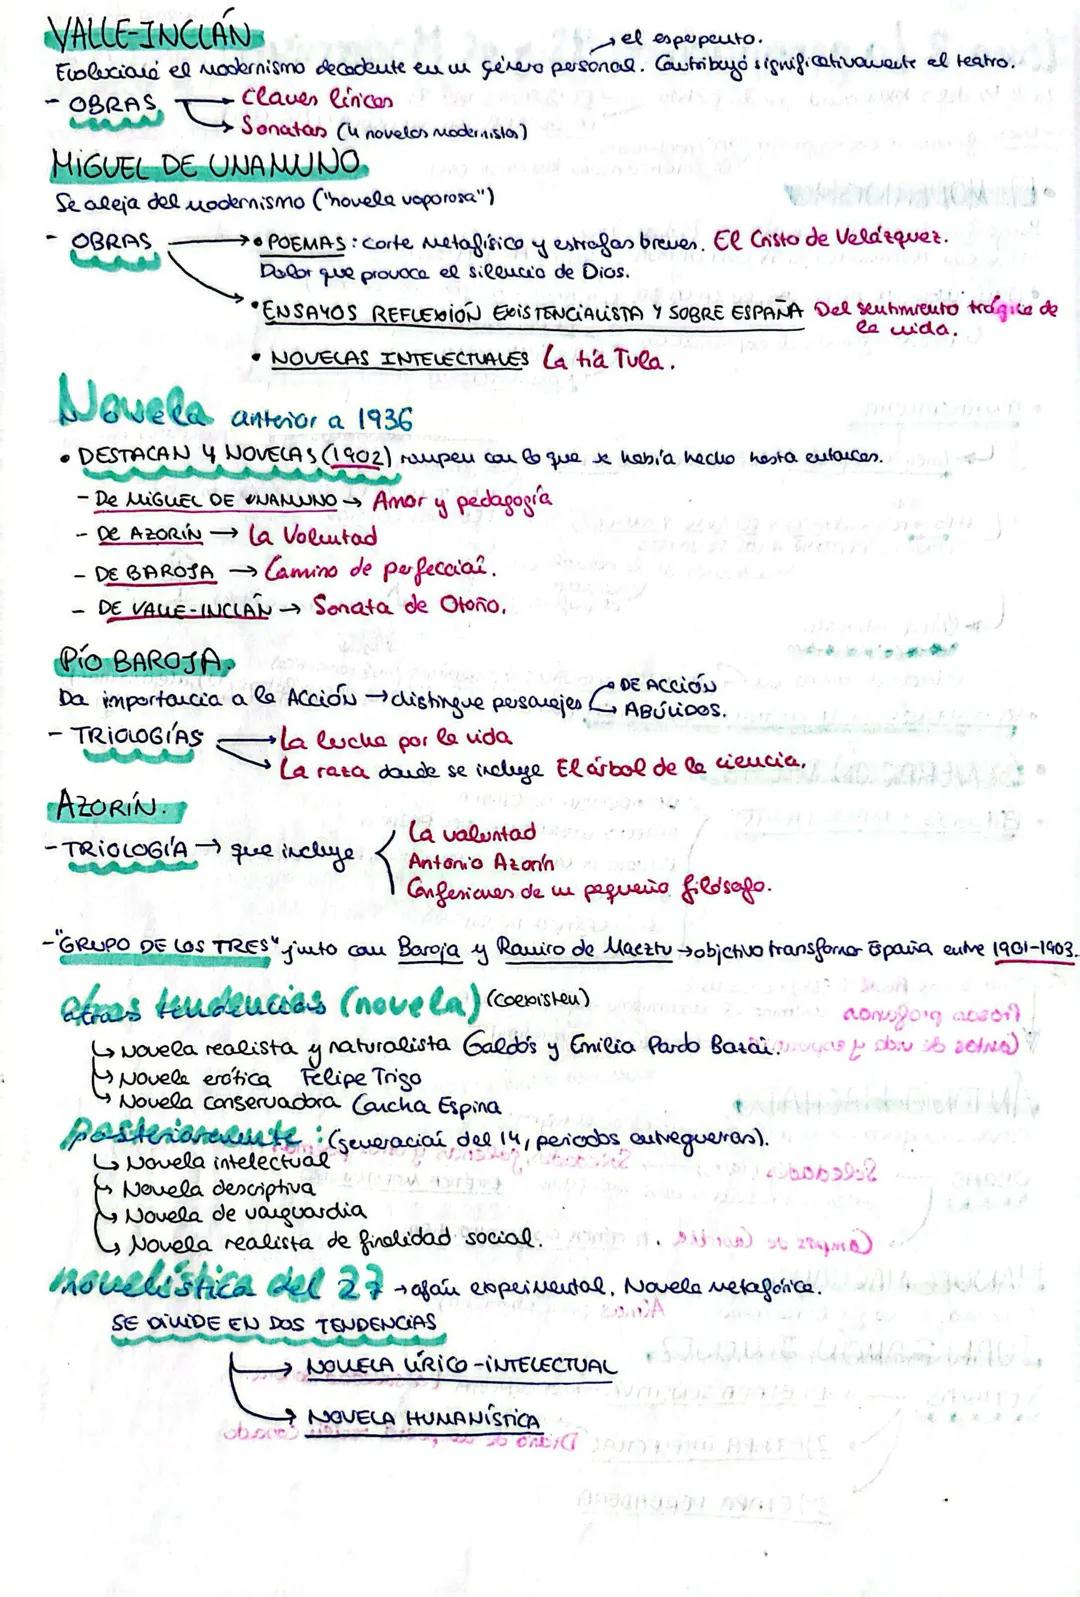 VALLE-INCLÁN
→ el esperpento.
Evolucioné el modernismo decadente en un género personal. Contribuyó significativamente al teatro.
- OBRAS → Claves líricas
→ Sonatas (4 novelas modernistas)
MIGUEL DE UNAMUNO
Se aleja del modernismo ("novela vaporosa")
- OBRAS → • POEMAS: corte metafísico y estrofas breves. El Cristo de Velázquez.
Dolor que provoca el silencio de Dios.
• ENSAYOS REFLEXIÓN EXISTENCIALISTA Y SOBRE ESPAÑA Del sentimiento trágico de
la vida.
• NOVELAS INTELECTUALES La tía Tula.
Novela anterior a 1936
• DESTACAN 4 NOVELAS (1902) rompen con lo que se había hecho hasta entonces.
- De MIGUEL DE UNAMUNO → Amor y pedagogía
- DE AZORÍN → La Voluntad
- DE BAROJA → Camino de perfección.
- DE VALLE-INCLÁN → Sonata de Otoño.
PÍO BAROJA.
Da importancia a la ACCIÓN → distingue personajes → DE ACCIÓN
→ ABÚLICOS.
- TRIOLOGÍAS → La lucha por la vida
→ La raza donde se incluye El árbol de la ciencia.
AZORÍN.
- TRIOLOGÍA → que incluye
La voluntad
Antonio Azorín
Confesiones de un pequeño filósofo.
- "GRUPO DE LOS TRES" junto con Baroja y Ramiro de Maeztu → objectivo transformar España entre 1901-1903.
otras tendencias (novela) (coexisten)
↳ Novela realista y naturalista Galdós y Emilia Pardo Bazán.
↳ Novela erótica Felipe Trigo
↳ Novela conservadora Concha Espina
Posteriormente: (generación del 14, periodos entreguerras).
↳ Novela intelectual
↳ Novela descriptiva
↳ Novela de vanguardia
↳ Novela realista de finalidad social.
novelística del 27 → afán experimental. Novela metafórica.
SE DIVIDE EN DOS TENDENCIAS
→ NOVELA LÍRICO-INTELECTUAL
→ NOVELA HUMANÍSTICA